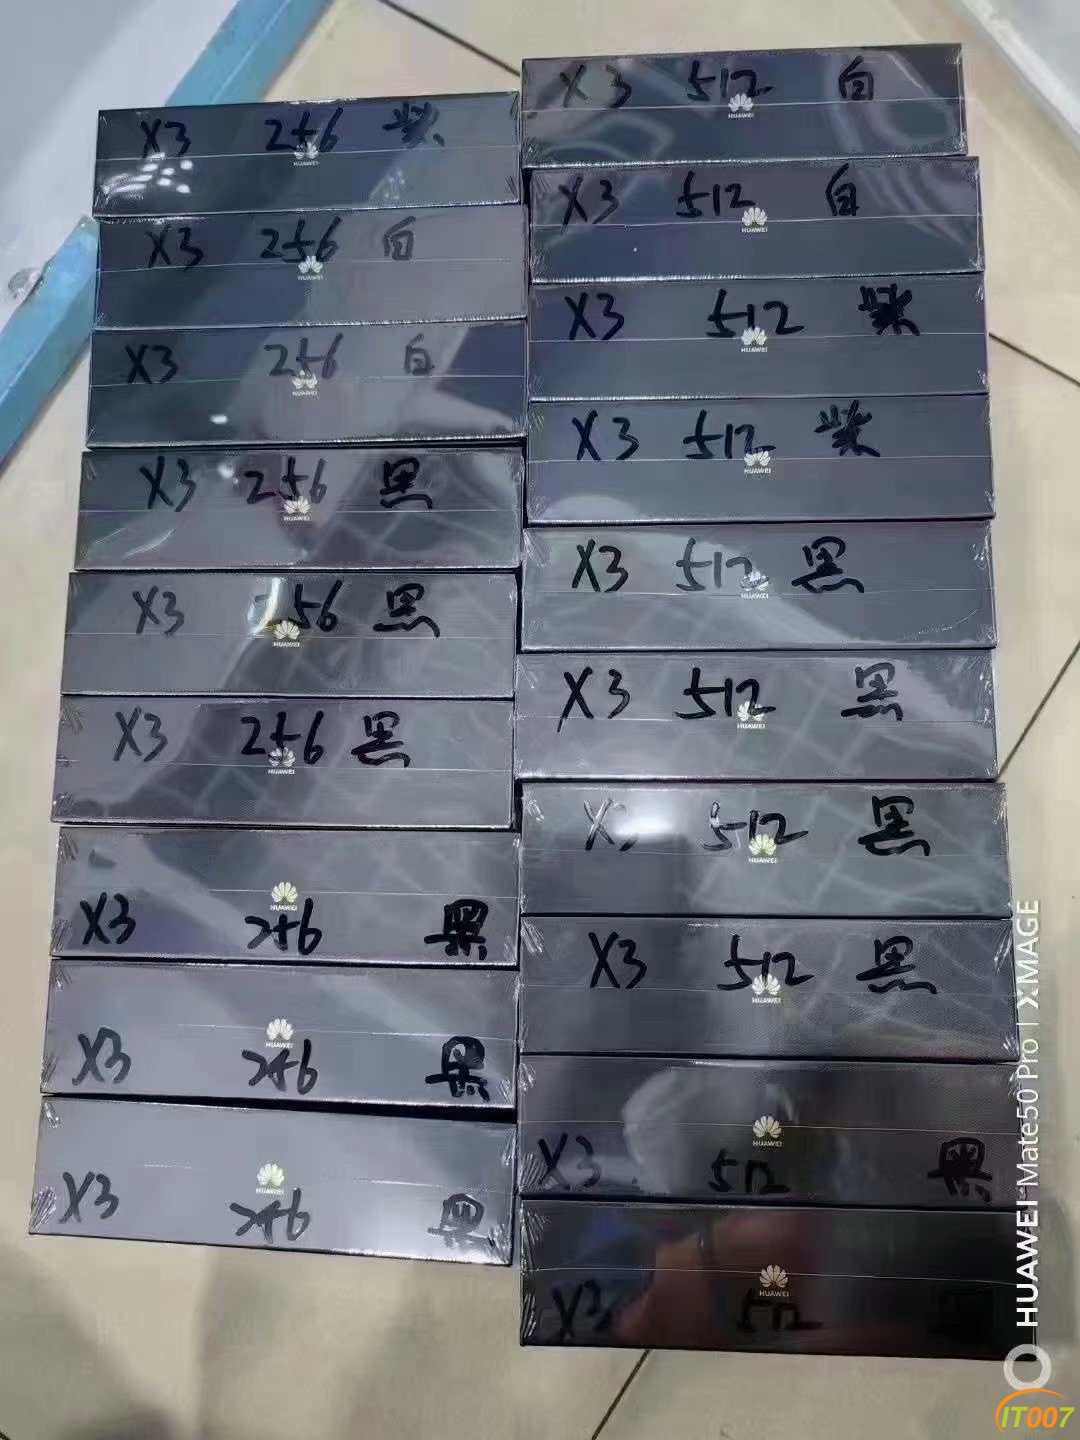 X3 256 紫
HUAWEI
X3 256 白
HUAWEI
X3 256 白
HUAWEI
X3 256 黑
HUAWEI
X3 256 黑
HUAWEI
X3 256 黑
HUAWEI
HUAWEI
X3 256 黑
HUAWEI
X3 256 黑
HUAWEI
X3 256 黑
X3 512 白
HUAWEI
X3 512 白
HUAWEI
X3 512 紫
HUAWEI
X3 512 紫
HUAWEI
X3 512 黑
HUAWEI
X3 512 黑
HUAWEI
X3 512 黑
HUAWEI
X3 512 黑
HUAWEI
HUAWEI
X3 512 黑
HUAWEI
X3 512
HUAWEI Mate50 Pro | XMAGE
IT007